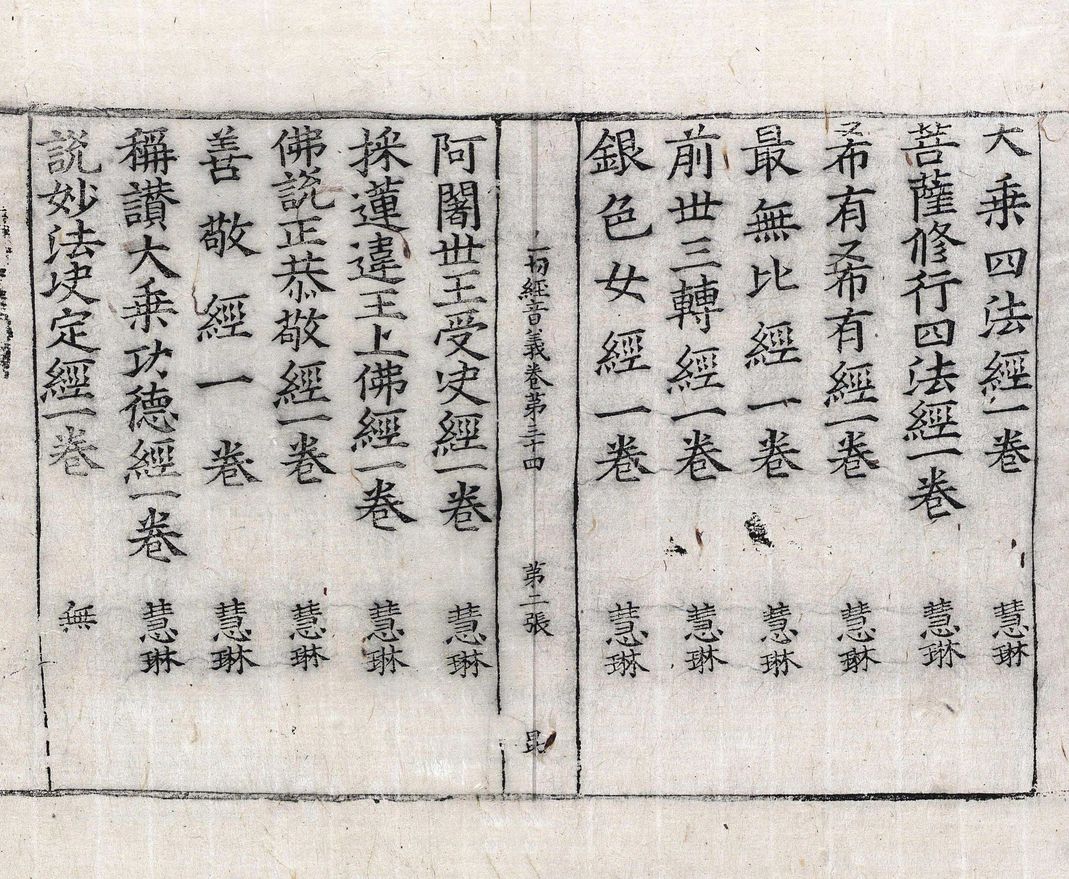 大乗四法經一卷 慧琳
菩薩修行四法經一卷 慧琳
希有希有經一卷 慧琳
最無比經一卷 慧琳
前世三轉經一卷 慧琳
銀色女經一卷 慧琳
一切經音義卷第三十四 第二張 昆
阿闍世王受決經一卷 慧琳
採蓮違王上佛經一卷 慧琳
佛說正恭敬經一卷 慧琳
善敬經一卷 慧琳
稱讃大乗功德經一卷 慧琳
說妙法決定經一卷 無